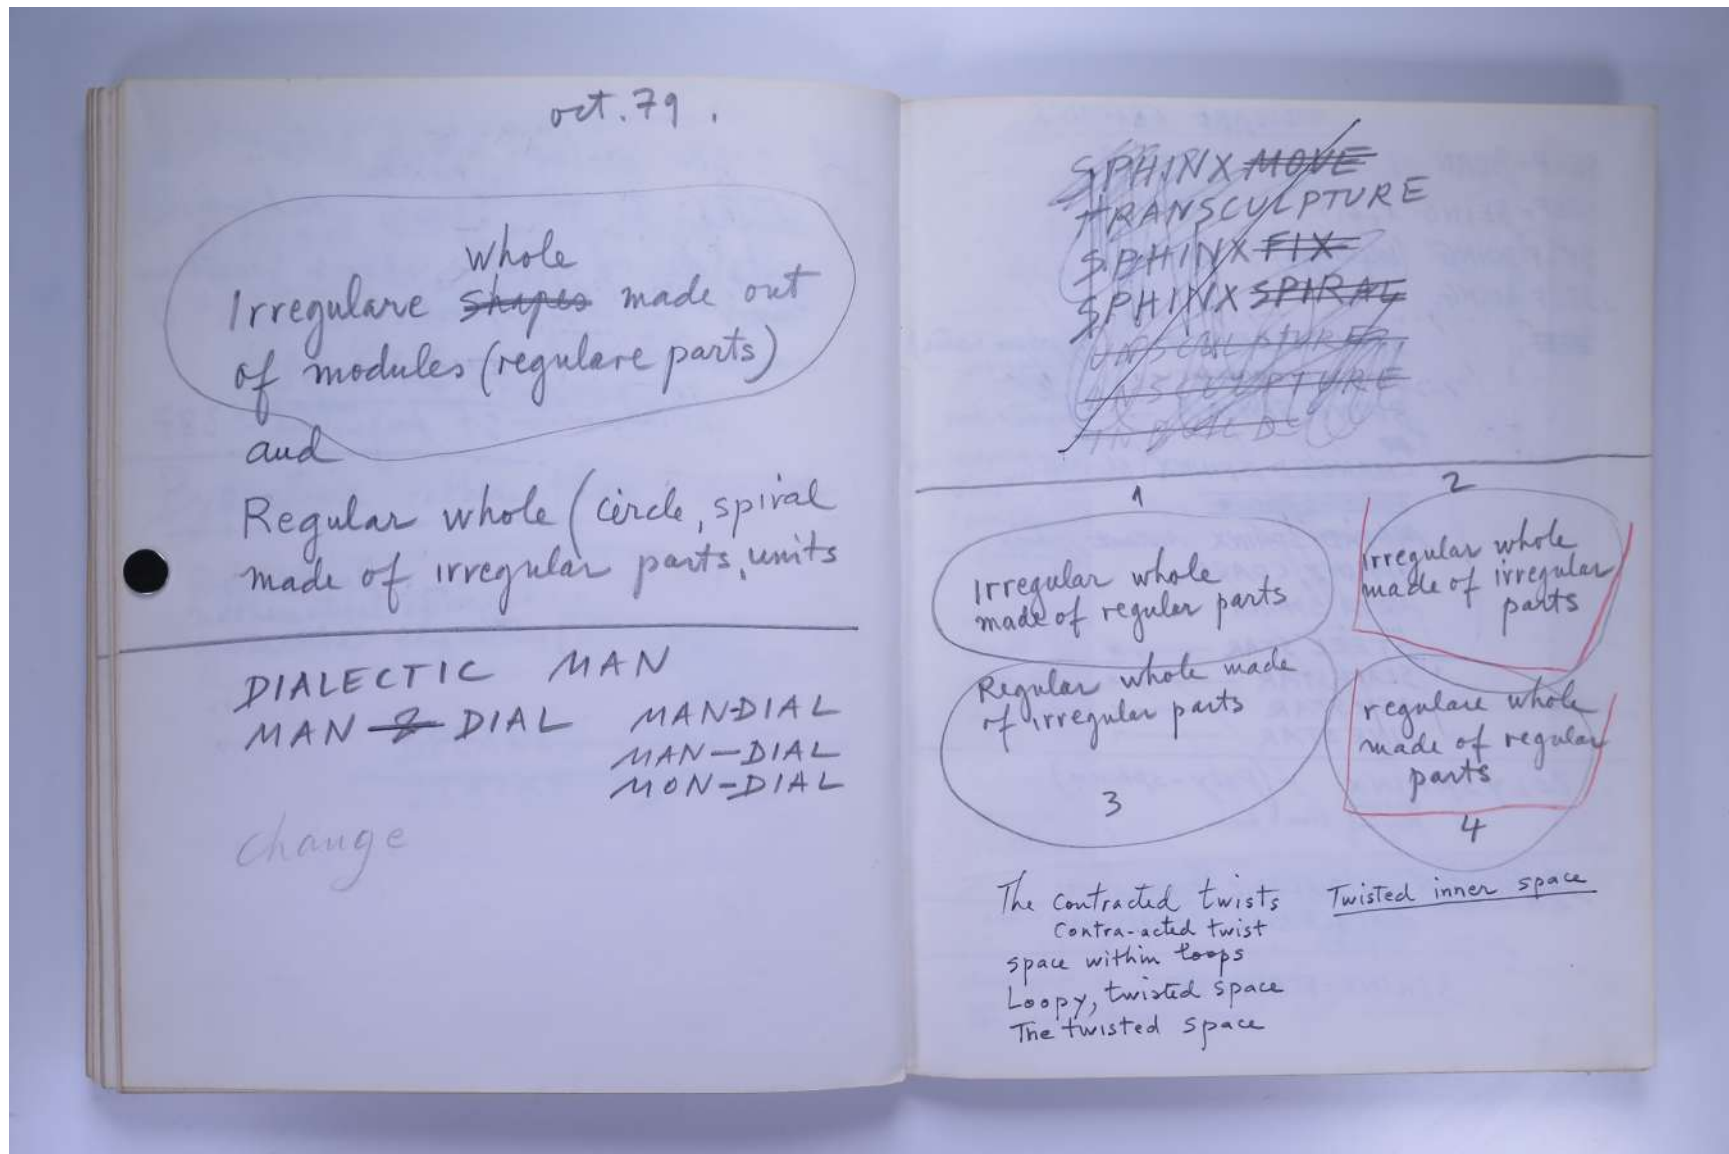 oct. 79.
whole
Irregulare shapes made out
of modules (regulare parts)
and
Regular whole (circle, spiral
made of irregular parts, units
DIALECTIC MAN
MAN & DIAL MAN-DIAL
MAN-DIAL
MON-DIAL
change
SPHINX MOVE
TRANSCULPTURE
SPHINX FIX
SPHINX SPIRAL
UNSCULPTURE
ANSCULPTURE
1
Irregular whole
made of regular parts
2
irregular whole
made of irregular
parts
Regular whole made
of irregular parts
3
regulare whole
made of regular
parts
4
The contracted twists
Contra-acted twist
space within loops
Loopy, twisted space
The twisted space
Twisted inner space